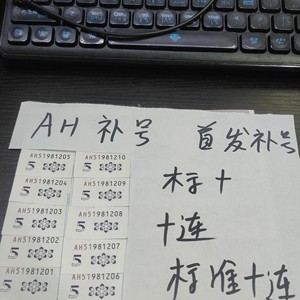 AH 补号 首发补号
AH51981205 AH51981210
5 5
AH51981204 AH51981209
5 5
标十
AH51981203 AH51981208
5 5
十连
AH51981202 AH51981207
5 5
AH51981201 AH51981206
5 5
标准十连